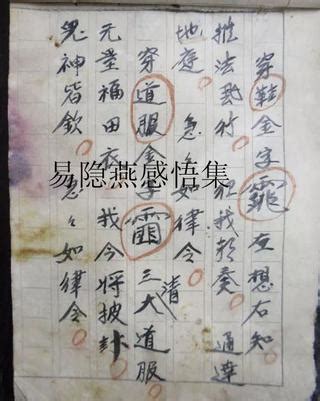 穿鞋金字 左想右知
推法 行 我 奏 通達
地庭 急々如律令
穿道服金字 三清大道服
元 福田衣 我今将披
鬼神皆欽 急々如律令
易隐燕感悟集